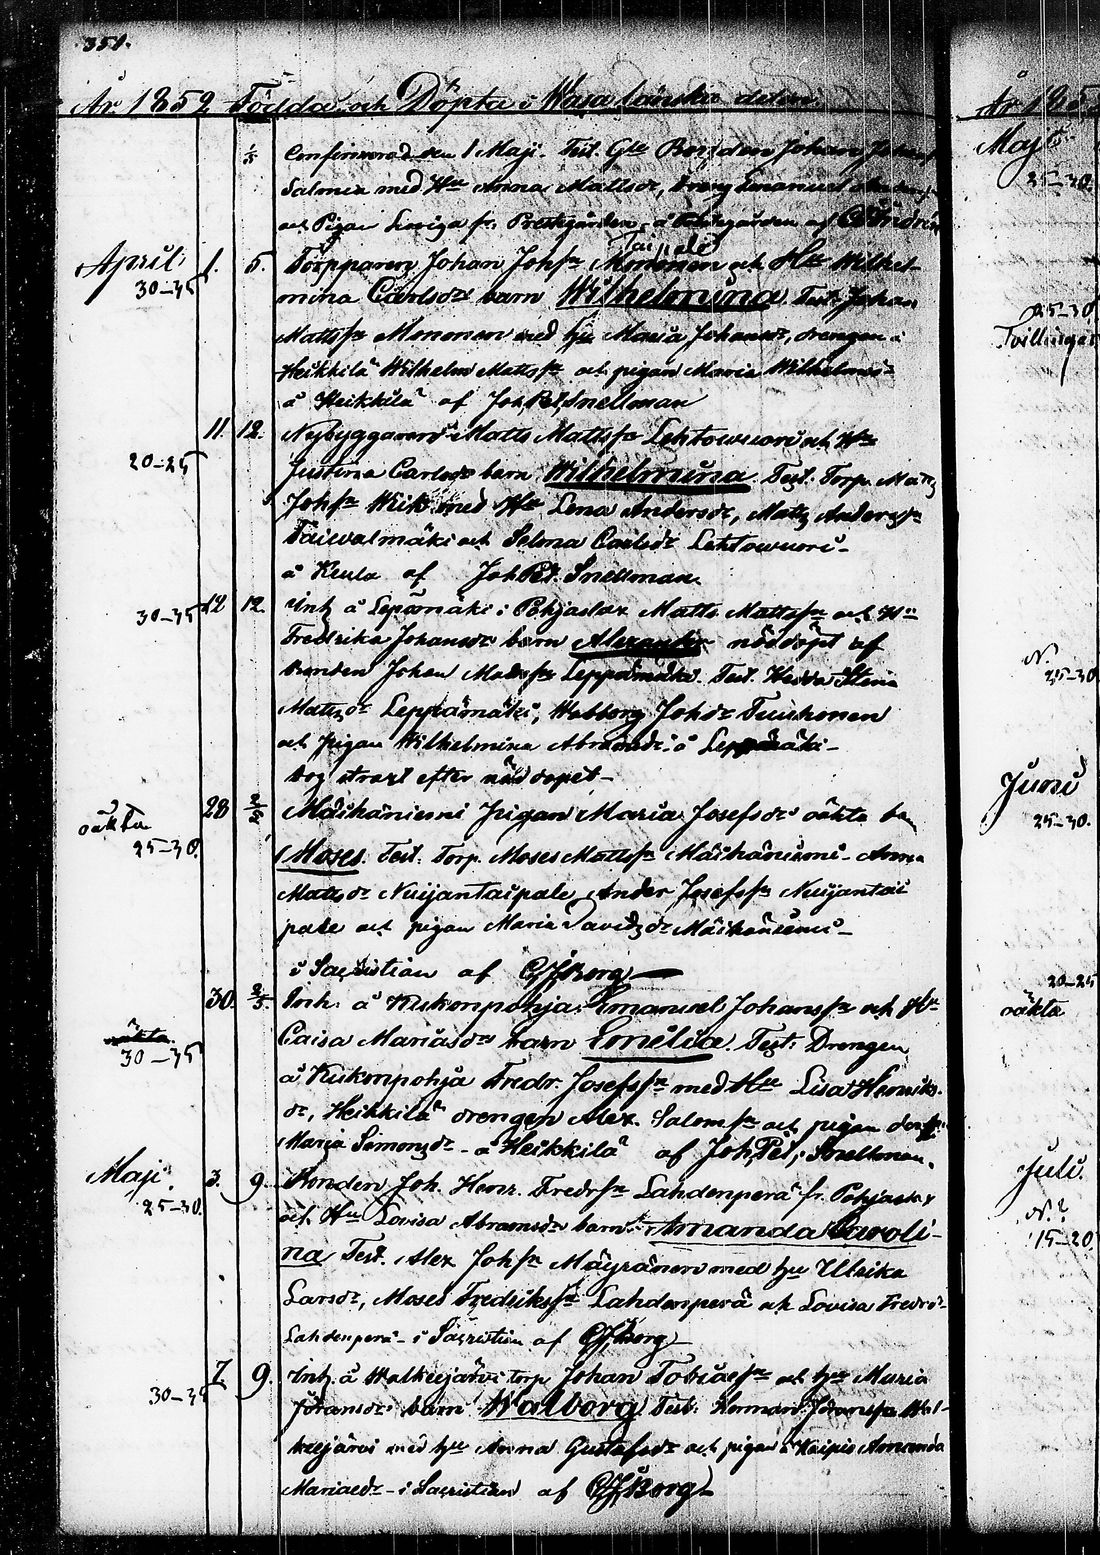 351.
År 1852 Födda och Döpta i Wasa länska delen.
1/5 Confirmerad den 1 Maji. Test. Gte Bonden Johan
Salonen med Hu Anna Mattsdr, Dreng Emanuel
och Pigan Loviga fr. Prestgården, å Prestgården af
April 1. 5. Torpparen Johan Johsn Mononen och Hu Wilhel-
Taipale
30-35 mina Carlsdr barn Wilhelmina. Test. Johan
Mattsn Mononen med hu Maria Johansdr, drengen i
Heikkilä Wilhelm Mattssn och pigan Maria Wilhelms-
å Heikkilä af Joh. Pet. Snellman
11. 12. Nybyggaren Matts Mattssn Lehtowuori och Hu
20-25 Justina Carlsdr barn Wilhelmina Test. Torp. Matts
Johsn Wiik med Hu Lena Andersdr, Matts Anderssn
Taiwalmäki och Selma Carlsdr Lehtowuori-
å Keula af Joh. Pet. Snellman
30-35 12 12. Inh. å Lepämäki i Pohjaslax Matts Mattssn och Hu
Fredrika Johansdr barn Alexander nöddöpt af
Bonden Johan Mattssn Leppämäki. Test. Hedda Stina
Mattsdr Leppämäki, Walborg Johdr Tuuhonen
och pigan Wilhelmina Abramsdr å Leppämäki-
dog straxt efter nöddopet-
28 2/5 Mäihäniemi Pigan Maria Josefsdr oäkta barn
oäkta
25-30. Moses. Test. Torp. Moses Mattssn Mäihäniemi- Anna
Mattsdr Nuijantaipale, Ander Josefssn Nuijantai
pale och pigan Maria Davidsdr Mäihäniemi-
i Sacristian af CJ Borg
30. 2/5. Inh. å Kiskonpohja Emanuel Johanssn och Hu
oäkta.
30-35 Caisa Mariasdr barn Emelia. Test: Drengen
å Kiskonpohja Fredr. Josefssn med Hu Lisa Henriks-
dr, Heikkilä drengen Alex. Salomsn och pigan
Maria Simonsdr - å Heikkilä af Joh. Pet. Snellman.
Maji 3. 9. Bonden Joh. Henr. Fredrsn Lahdenperä fr. Pohjaslax
25-30. och Hu Lovisa Abramsdr barn Amanda Caroli-
na Test. Alex Johsn Mäyränen med hu Ulrika
Larsdr, Moses Fredrikssn Lahdenperä och Lovisa Fredrs-
Lahdenperä - i Sacristian af CJ Borg
7 9. Inh. å Walkeejärvi torp Johan Tobiassn och hu Maria
30-35 Jöransdr barn Walborg. Test: Herman Jöranssn Wal-
keejärvi med hu Anna Gustafsdr och pigan å Kaipio Amanda
Mariaedr - i Sacristian af CJ Borg
År 185
Maj
25-30.
25-30
Tvillingar
N.
25-30
Juni
25-30.
20-25
oäkta
Juli.
N.2
15-20